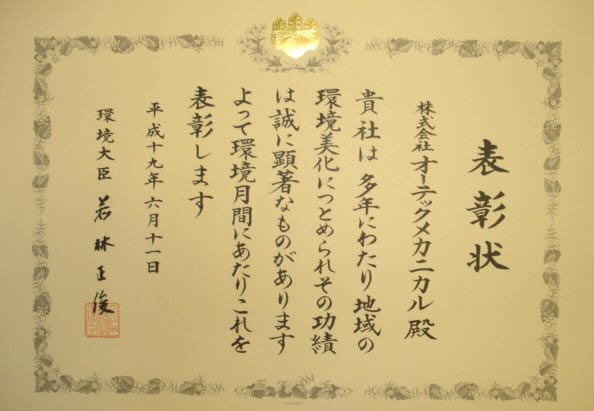 表彰状
株式会社 オーテックメカニカル 殿
貴社は 多年にわたり 地域の
環境美化につとめられその功績
は誠に顕著なものがあります
よって環境月間にあたりこれを
表彰します
平成十九年 六月十一日
環境大臣 若林正俊